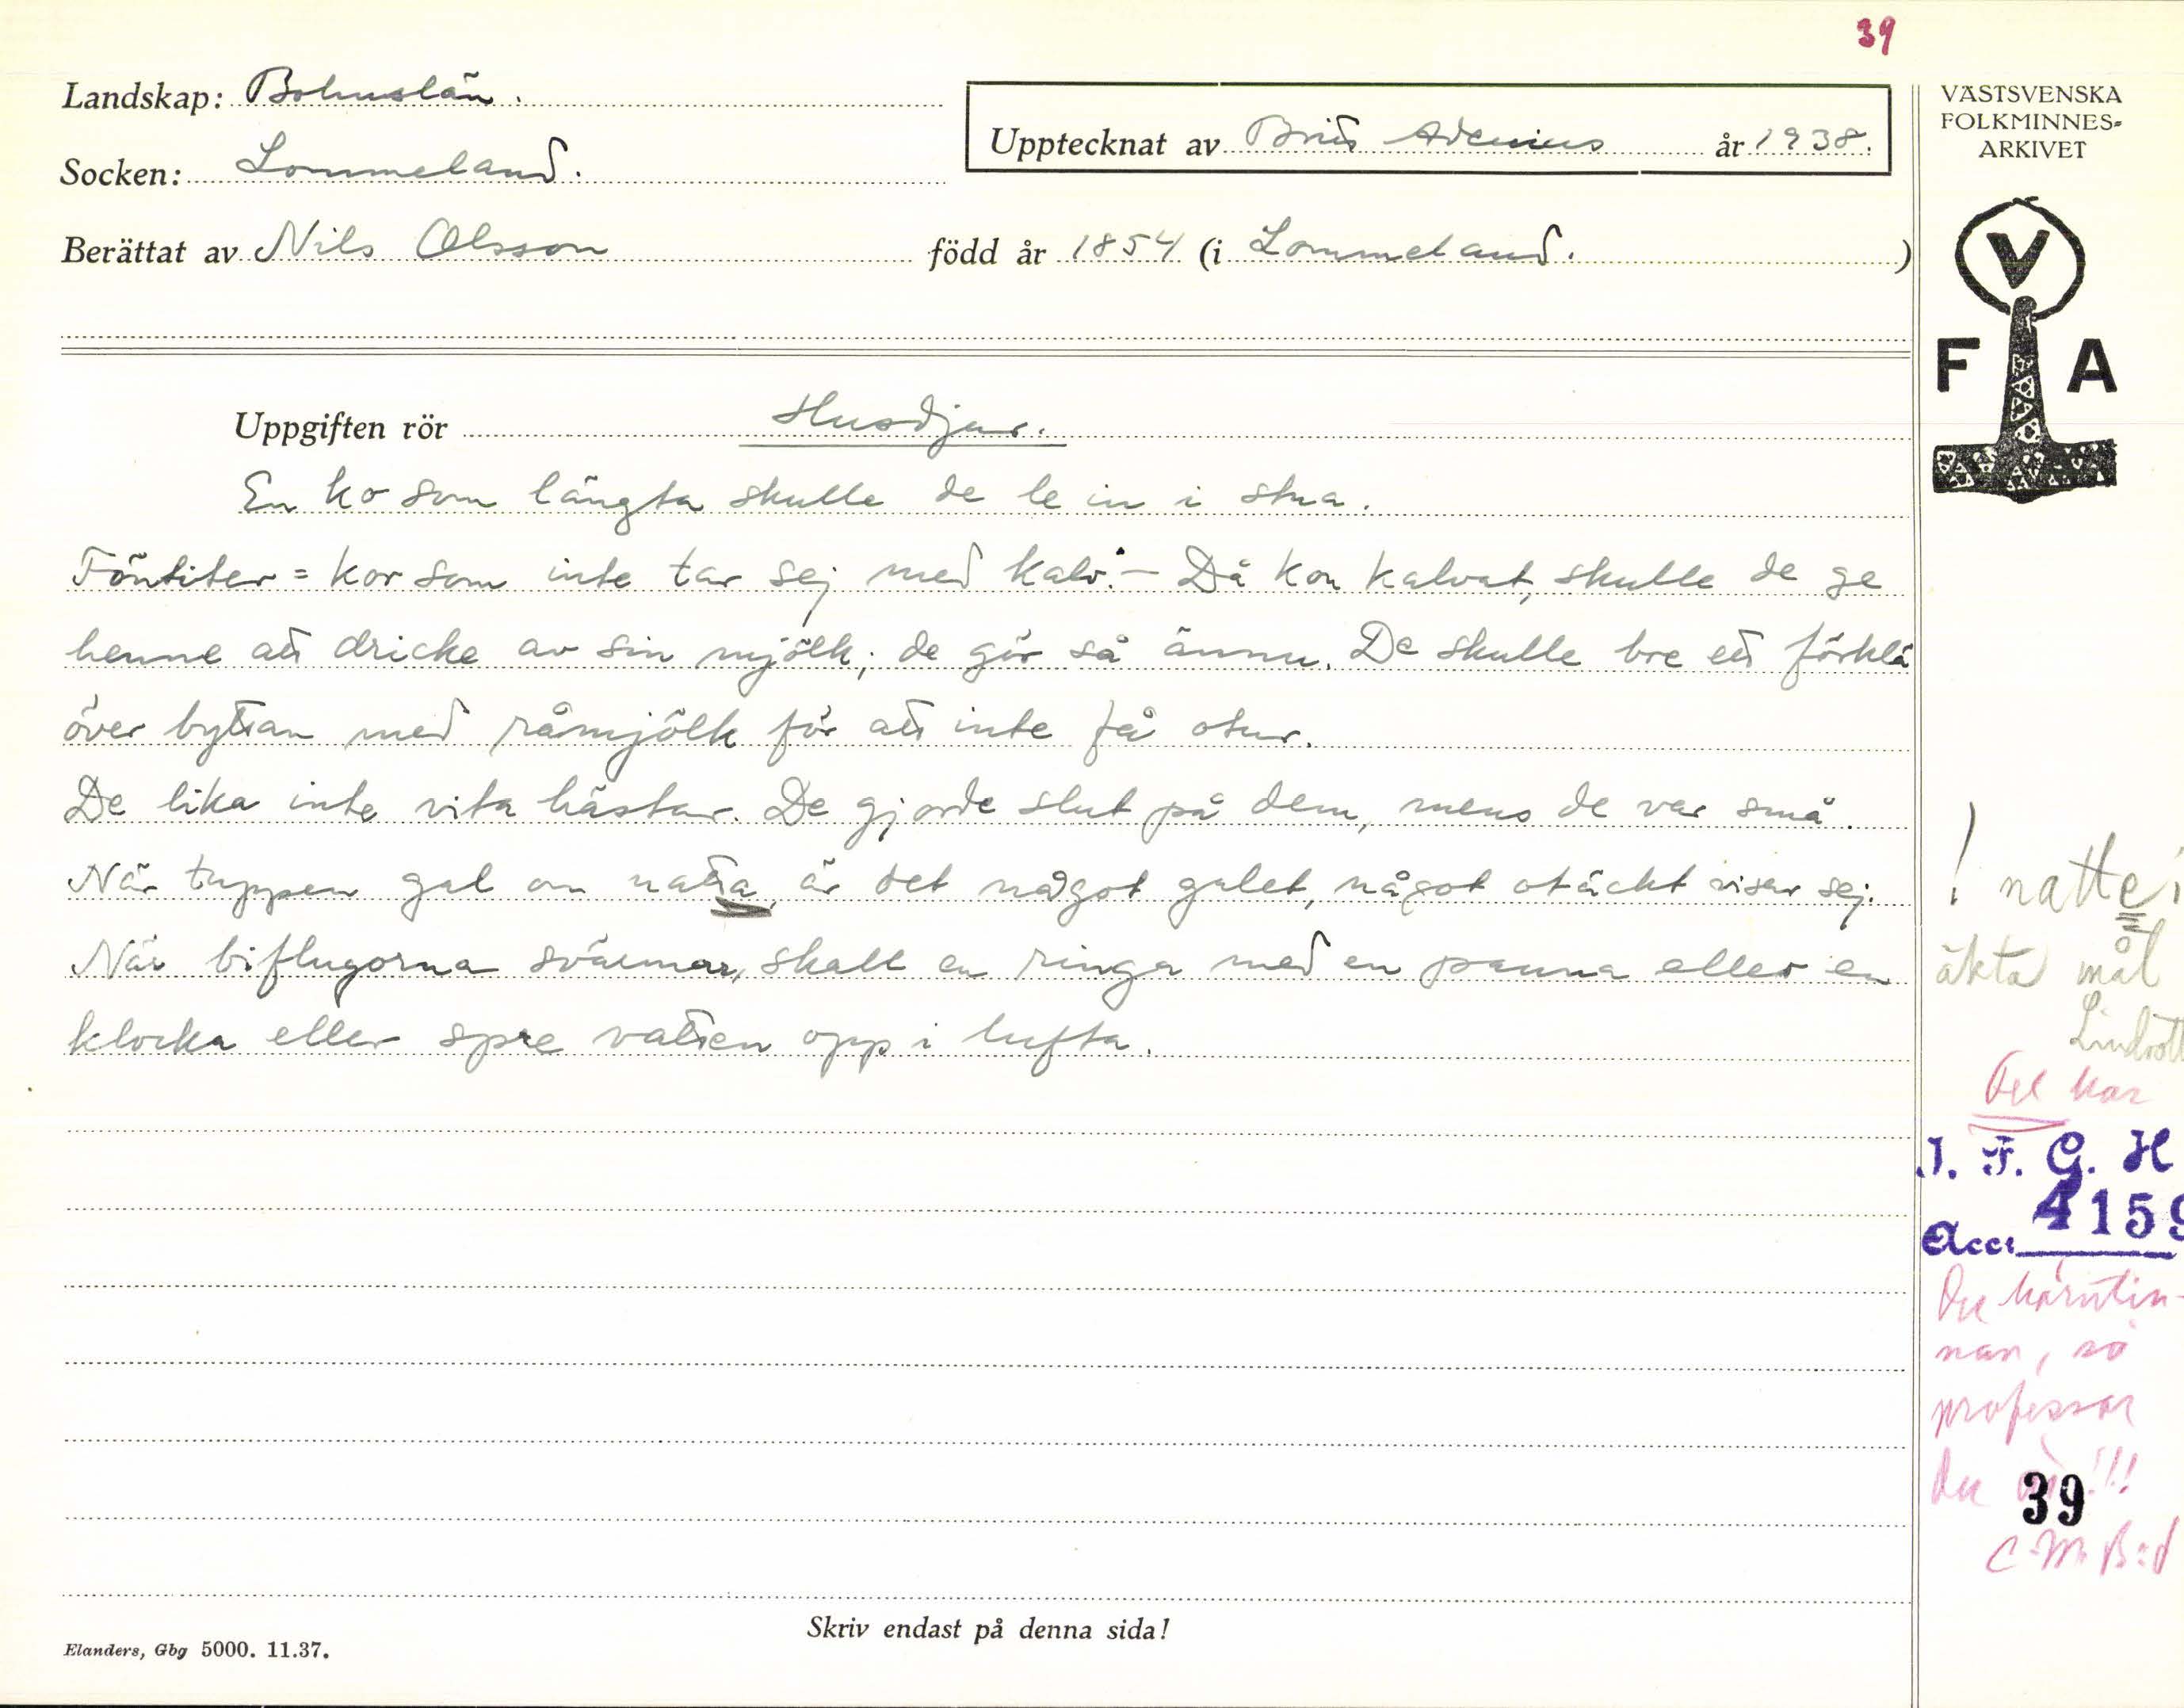 39
Landskap: Bohuslän.
Socken: Lommeland.
Upptecknat av Brita Adenius år 1938.
Berättat av Nils Olsson född år 1854 (i Lommeland.)
Uppgiften rör Husdjur.
En ko som längta skulle de le in i stua.
Töntiter = kor som inte tar sej med kalv. – Då kon kalvat, skulle de ge
henne att dricke av sin mjölk; de gör så ännu. De skulle bre ett förklä
över byttan med råmjölk för att inte få otur.
De lika inte vita hästar. De gjorde slut på dem, mens de var små.
När tuppen gal om natta, är det något galet, något otäckt visar sej.
När biflugorna svärmar, skall en ringa med en panna eller en
klocka eller spre vatten opp i lufta.
Skriv endast på denna sida!
Elanders, Gbg 5000. 11.37.
VÄSTSVENSKA
FOLKMINNES-
ARKIVET
V
F A
! natte i
äkta mål
Lindroth
Det har
I. F. G. H
Acc. 4159
nan, så
professor
du !!!
39
C.M. B:d